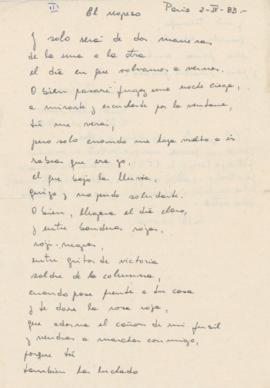 II
El regreso
Paris 2-IV-83-
Y solo será de dos maneras
de la una a la otra
el día en que volvamos a vernos.
O bien pasaré fugaz una noche ciega,
a mirarte y escucharte por la ventana,
tú me verás,
pero solo cuando me haya vuelto a ir
sabrás que era yo,
el que bajo la lluvia,
quiso y no pudo saludarte.
O bien, llegará el día claro,
y entre banderas rojas,
roji-negras,
entre gritos de victoria
saldré de la columna,
cuando pase frente a tu casa
y te daré la rosa roja,
que adorna el cañón de mi fusil
y vendrás a marchar conmigo,
porque tú
también has luchado